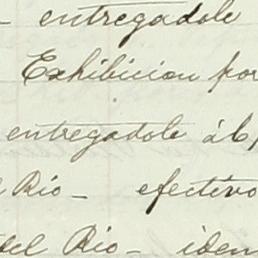 - entregadole
Exhibicion por
entregadole á
Rio - efectivo
del Rio - iden